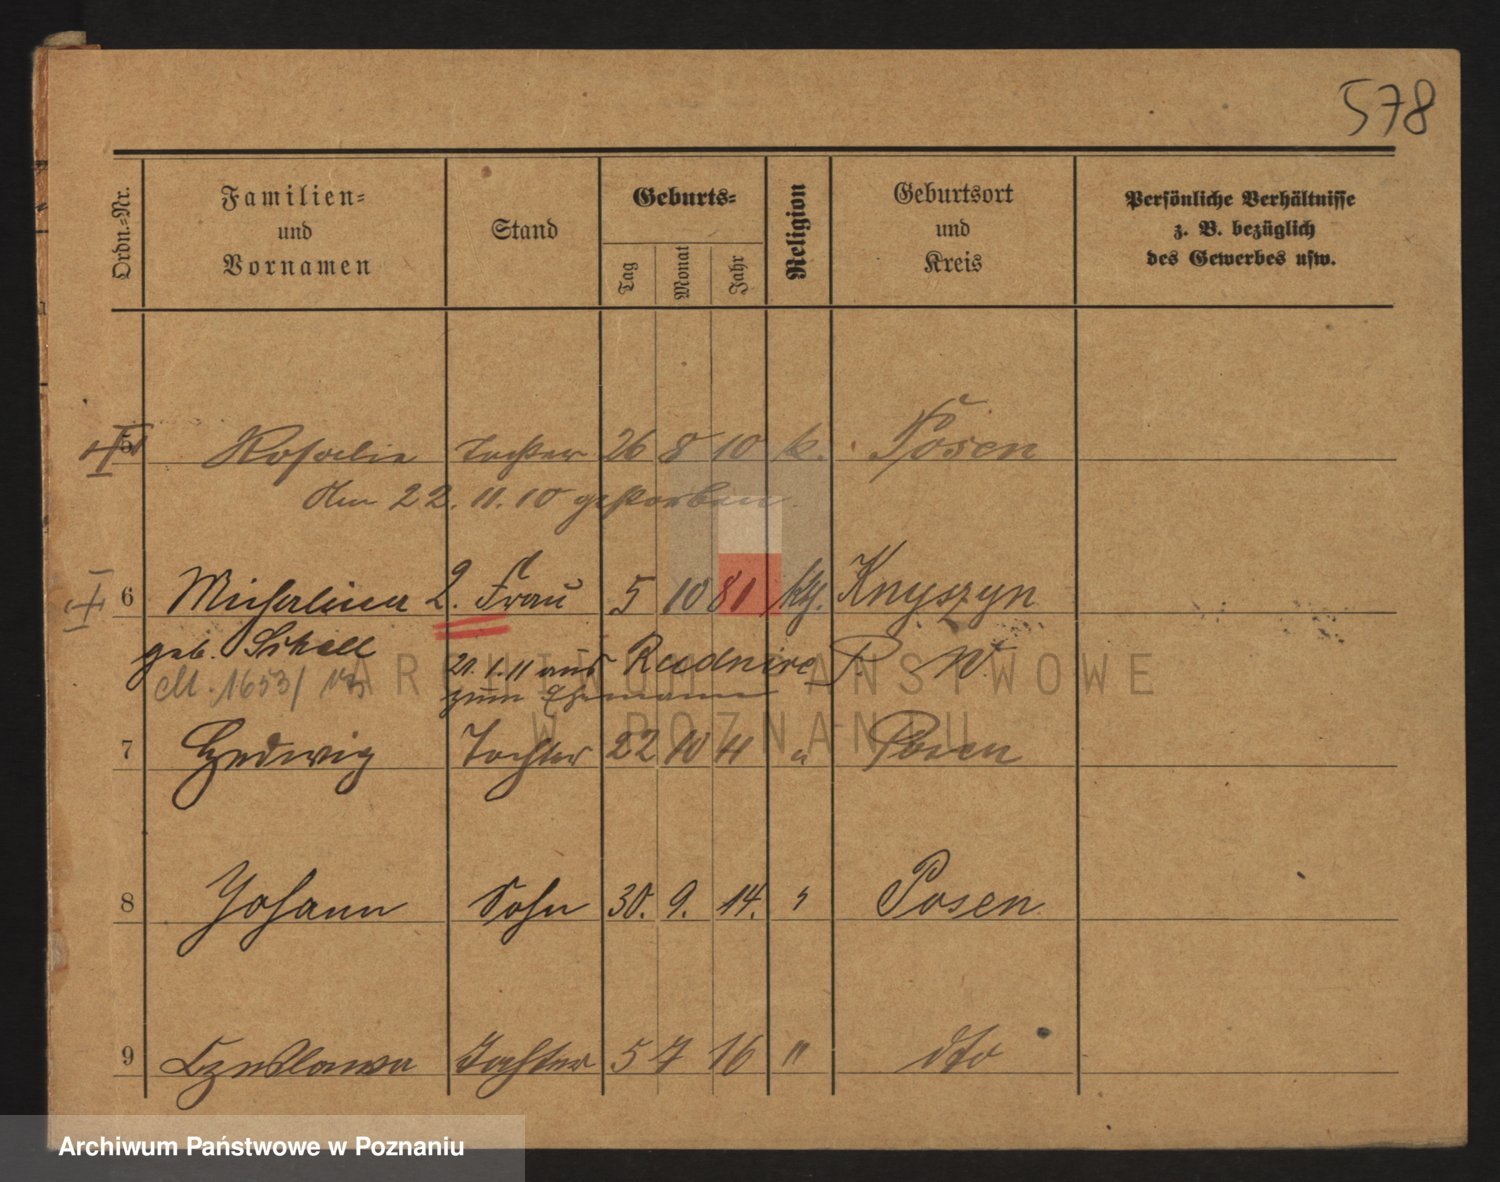 578
Ordn.-Nr.
Familien- und Vornamen
Stand
Geburts-
Tag Monat Jahr
Religion
Geburtsort und Kreis
Persönliche Verhältnisse z. B. bezüglich des Gewerbes usw.
5 Rosalie Tochter 26 8 10 k. Posen
Am 22. 11. 10 gestorben.
6 Michalina 2. Frau 5 10 81 klg. Knyszyn
geb. 21. 1. 11 aus Rudnicze P. W.
M. 1653/ zum Ehemann
7 Hedwig Tochter 22 10 11 " Posen
8 Johann Sohn 30. 9. 14. " Posen
9 Czeslawa Tochter 5 7 16 " dto
ARCHIWUM PAŃSTWOWE
W POZNANIU
Archiwum Państwowe w Poznaniu